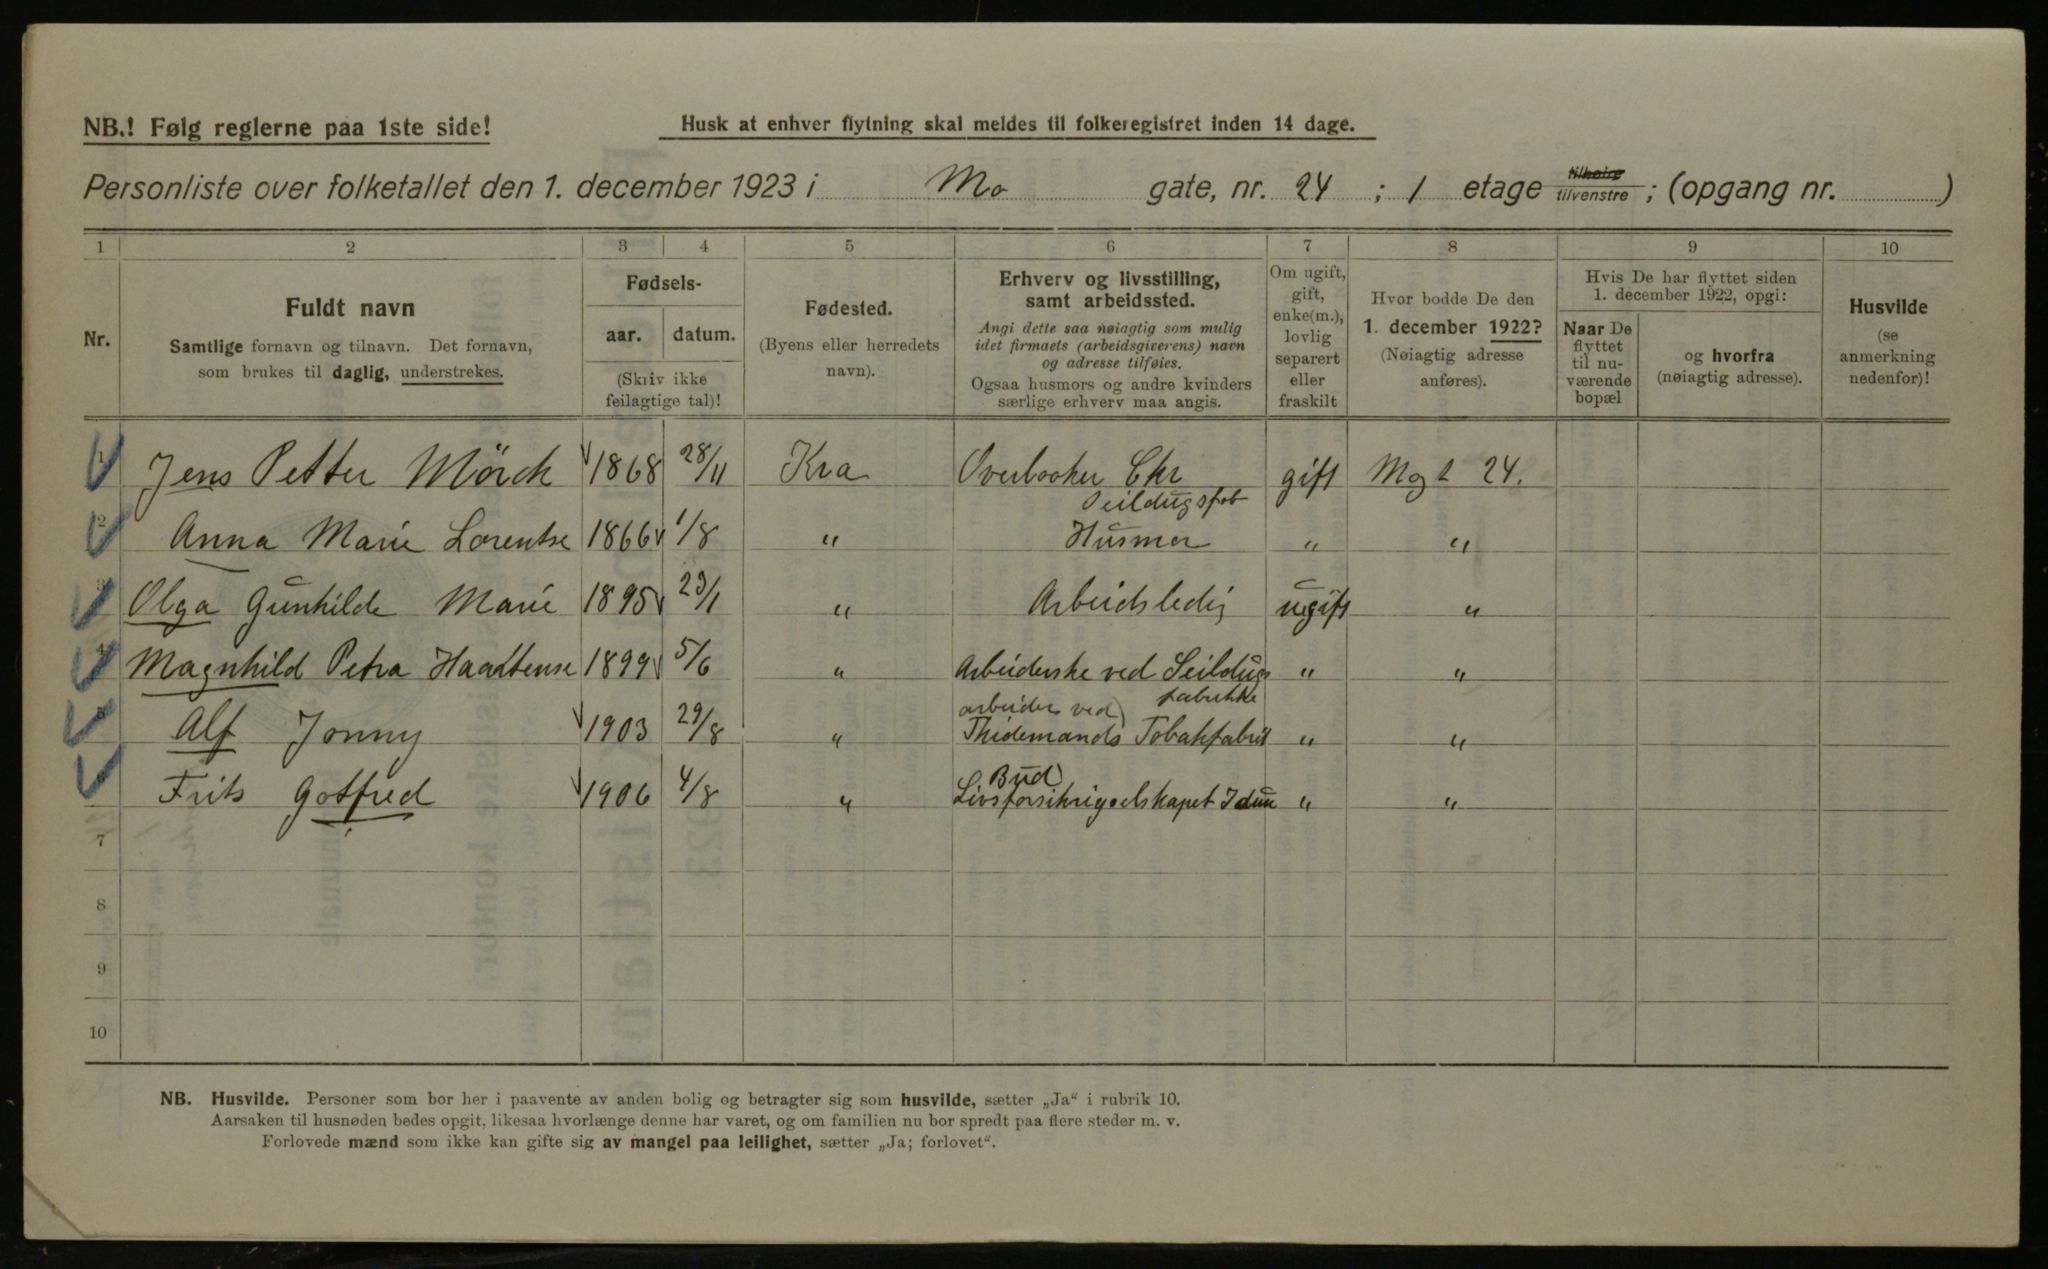 NB.! Følg reglerne paa 1ste side!
Husk at enhver flytning skal meldes til folkeregistret inden 14 dage.
Personliste over folketallet den 1. december 1923 i Mo gate, nr. 24 ; 1 etage tilhøire tilvenstre ; (opgang nr. )
1 2 3 4 5 6 7 8 9 10
Nr.
Fuldt navn
Samtlige fornavn og tilnavn. Det fornavn,
som brukes til daglig, understrekes.
Fødsels-
aar. datum.
(Skriv ikke
feilagtige tal)!
Fødested.
(Byens eller herredets
navn).
Erhverv og livsstilling,
samt arbeidssted.
Angi dette saa nøiagtig som mulig
idet firmaets (arbeidsgiverens) navn
og adresse tilføies.
Ogsaa husmors og andre kvinders
særlige erhverv maa angis.
Om ugift,
gift,
enke(m.),
lovlig
separert
eller
fraskilt
Hvor bodde De den
1. december 1922?
(Nøiagtig adresse
anføres).
Hvis De har flyttet siden
1. december 1922, opgi:
Naar De
flyttet
til nu-
værende
bopæl
og hvorfra
(nøiagtig adresse).
Husvilde
(se
anmerkning
nedenfor)!
1 Jens Petter Mörck 1868 28/11 Kra Overbooker Chr gift Mogt 24.
Seildugsfab
2 Anna Marie Lorentse 1866 1/8 " Husmor " "
3 Olga Gunhilde Marie 1895 23/1 " Arbeidsledig ugift "
4 Magnhild Petra Haaktense 1899 5/6 " Arbeiderske ved Seildugs " "
fabrikke
arbeider ved
5 Alf Jonny 1903 29/8 " Thidemands Tobakfabrik " "
Bud
6 Frits Gotfred 1906 4/8 " Livsforsikrigselskapet Idun " "
7
8
9
10
NB. Husvilde. Personer som bor her i paavente av anden bolig og betragter sig som husvilde, sætter „Ja“ i rubrik 10.
Aarsaken til husnøden bedes opgit, likesaa hvorlænge denne har varet, og om familien nu bor spredt paa flere steder m. v.
Forlovede mænd som ikke kan gifte sig av mangel paa leilighet, sætter „Ja; forlovet“.